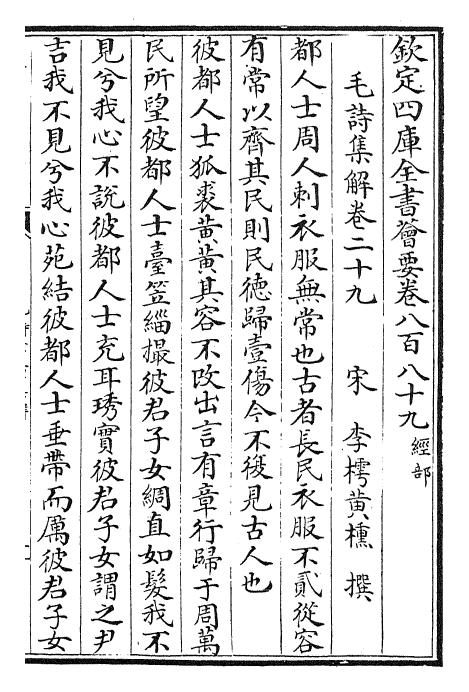 欽定四庫全書薈要卷八百八十九 經部
毛詩集解卷二十九 宋 李樗黃櫄 撰
都人士周人刺衣服無常也古者長民衣服不貳從容
有常以齊其民則民德歸壹傷今不復見古人也
彼都人士狐裘黃黃其容不改出言有章行歸于周萬
民所望彼都人士臺笠緇撮彼君子女綢直如髮我不
見兮我心不說彼都人士充耳琇實彼君子女謂之尹
吉我不見兮我心苑結彼都人士垂帶而厲彼君子女